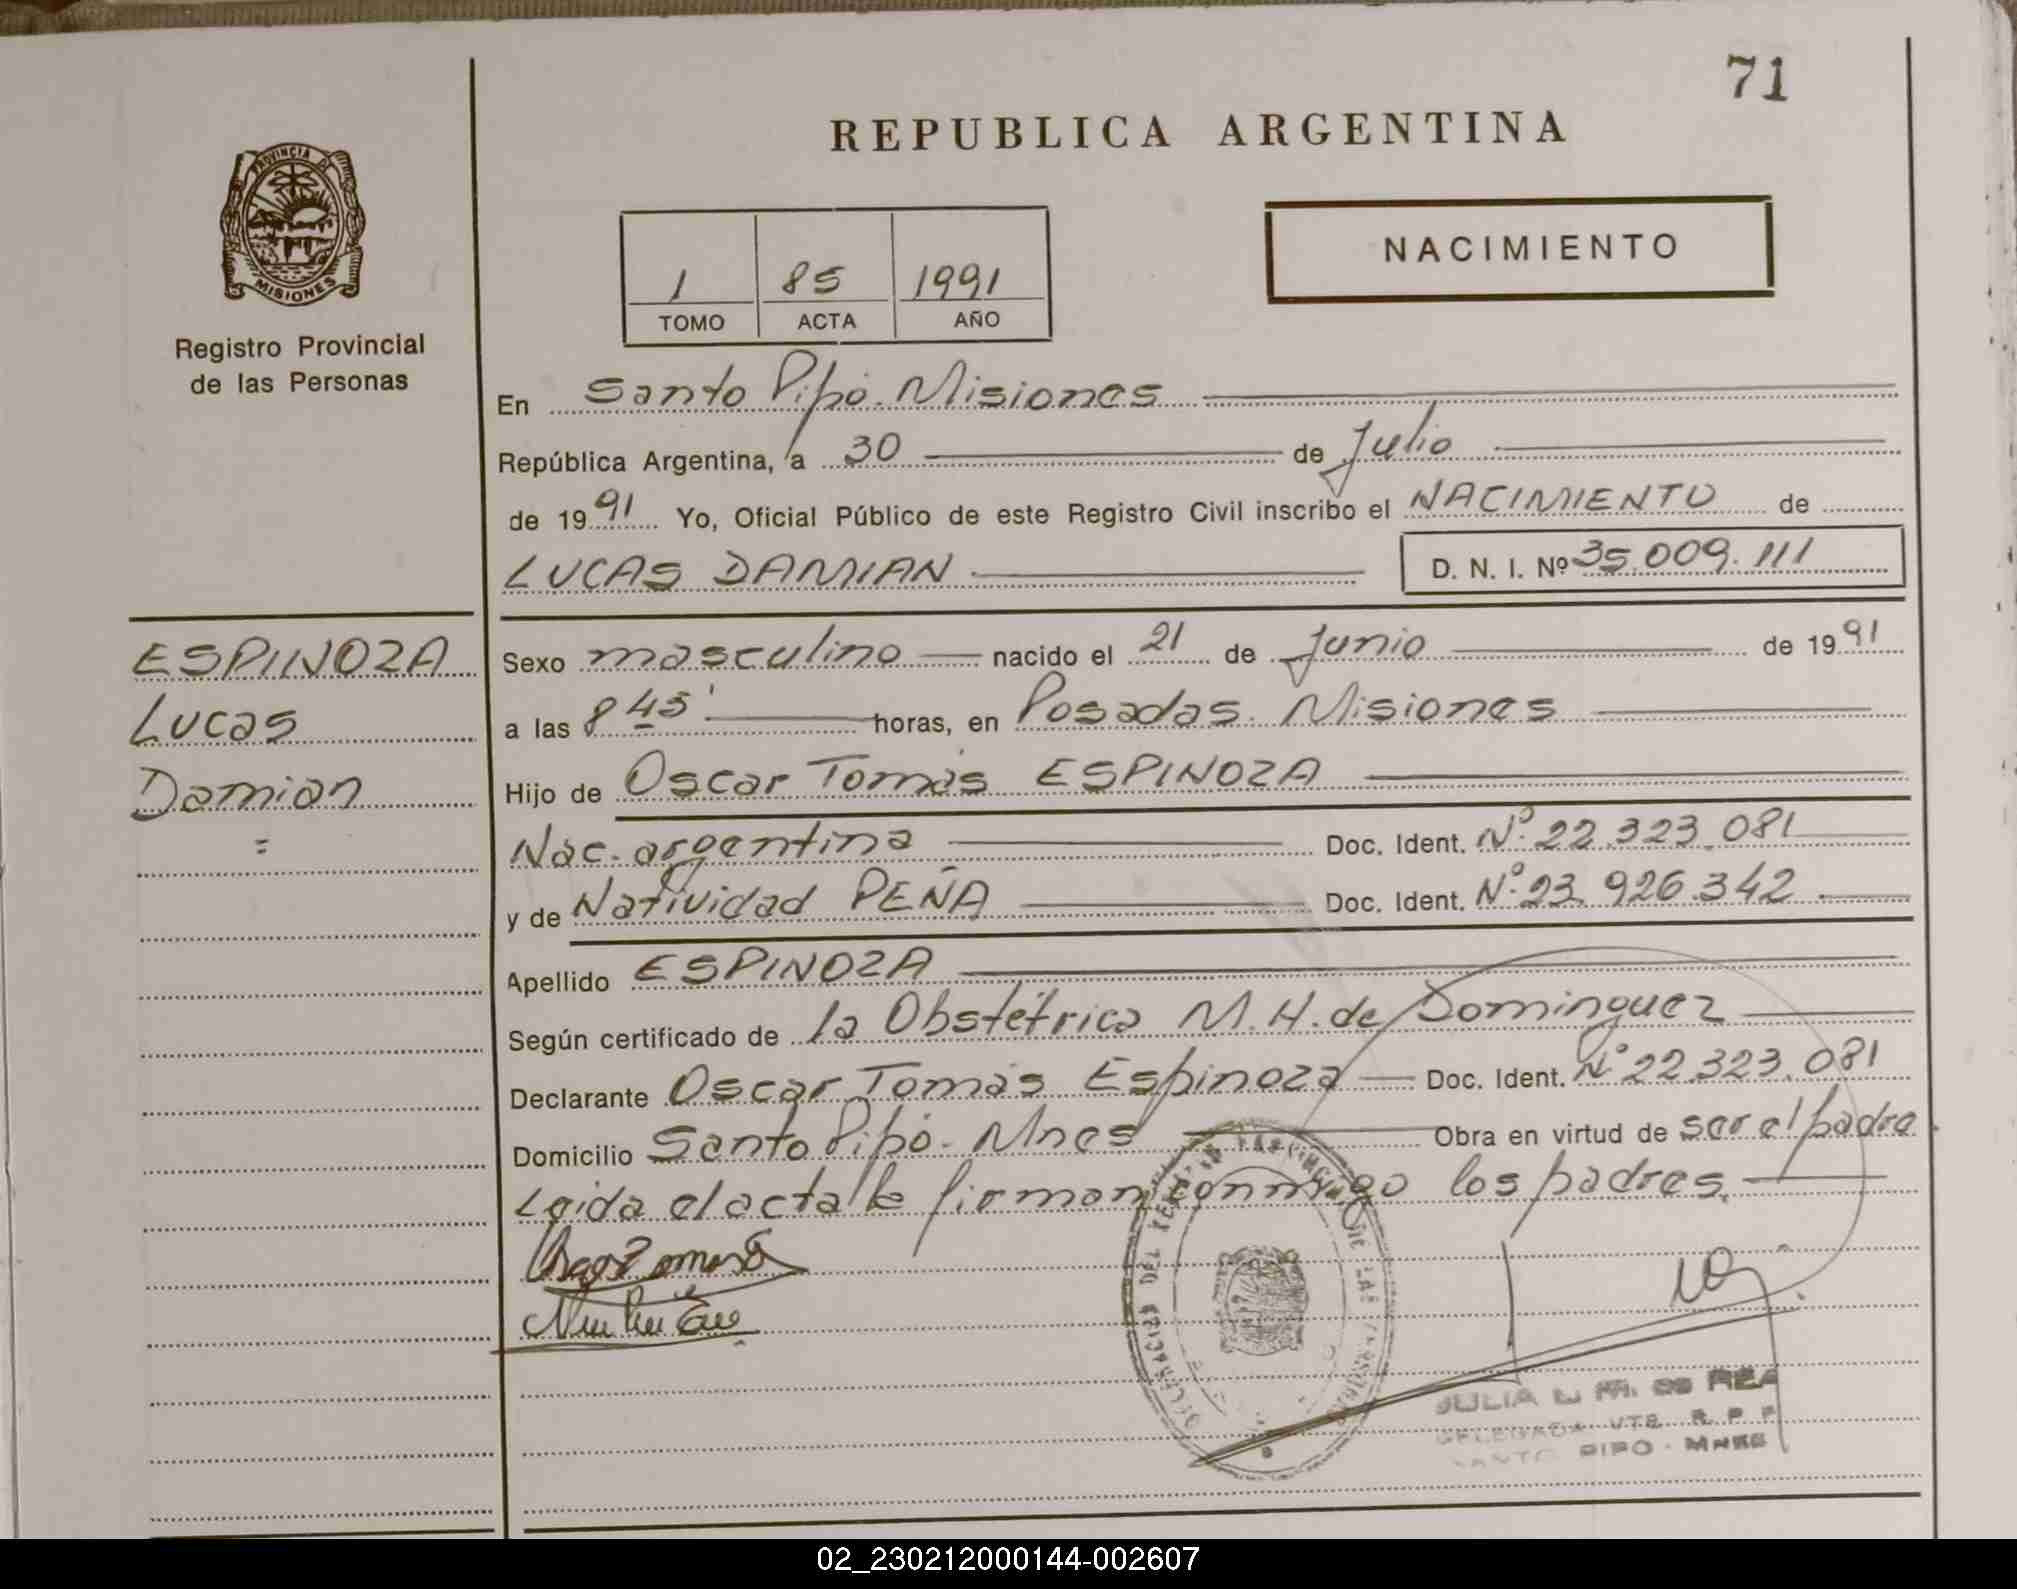 71
REPUBLICA ARGENTINA
PROVINCIA DE
MISIONES
Registro Provincial
de las Personas
1 85 1991
TOMO ACTA AÑO
NACIMIENTO
En Santo Pipó. Misiones
República Argentina, a 30 de Julio
de 1991 Yo, Oficial Público de este Registro Civil inscribo el NACIMIENTO de
LUCAS DAMIAN D. N. I. Nº 35.009.111
ESPINOZA
Lucas
Damian
=
Sexo masculino nacido el 21 de Junio de 1991
a las 8 45' horas, en Posadas. Misiones
Hijo de Oscar Tomás ESPINOZA
Nac. argentina Doc. Ident. Nº 22.323.081
y de Natividad PEÑA Doc. Ident. Nº 23.926.342
Apellido ESPINOZA
Según certificado de la Obstétrica M.H. de Dominguez
Declarante Oscar Tomás Espinoza Doc. Ident. Nº 22.323.081
Domicilio Santo Pipó. Mnes Obra en virtud de ser el padre
Leida el acta la firman conmigo los padres.
JULIA L. M. de REA
DELEGADA VTE. R. P. P.
SANTO PIPO - MNES
02_230212000144-002607